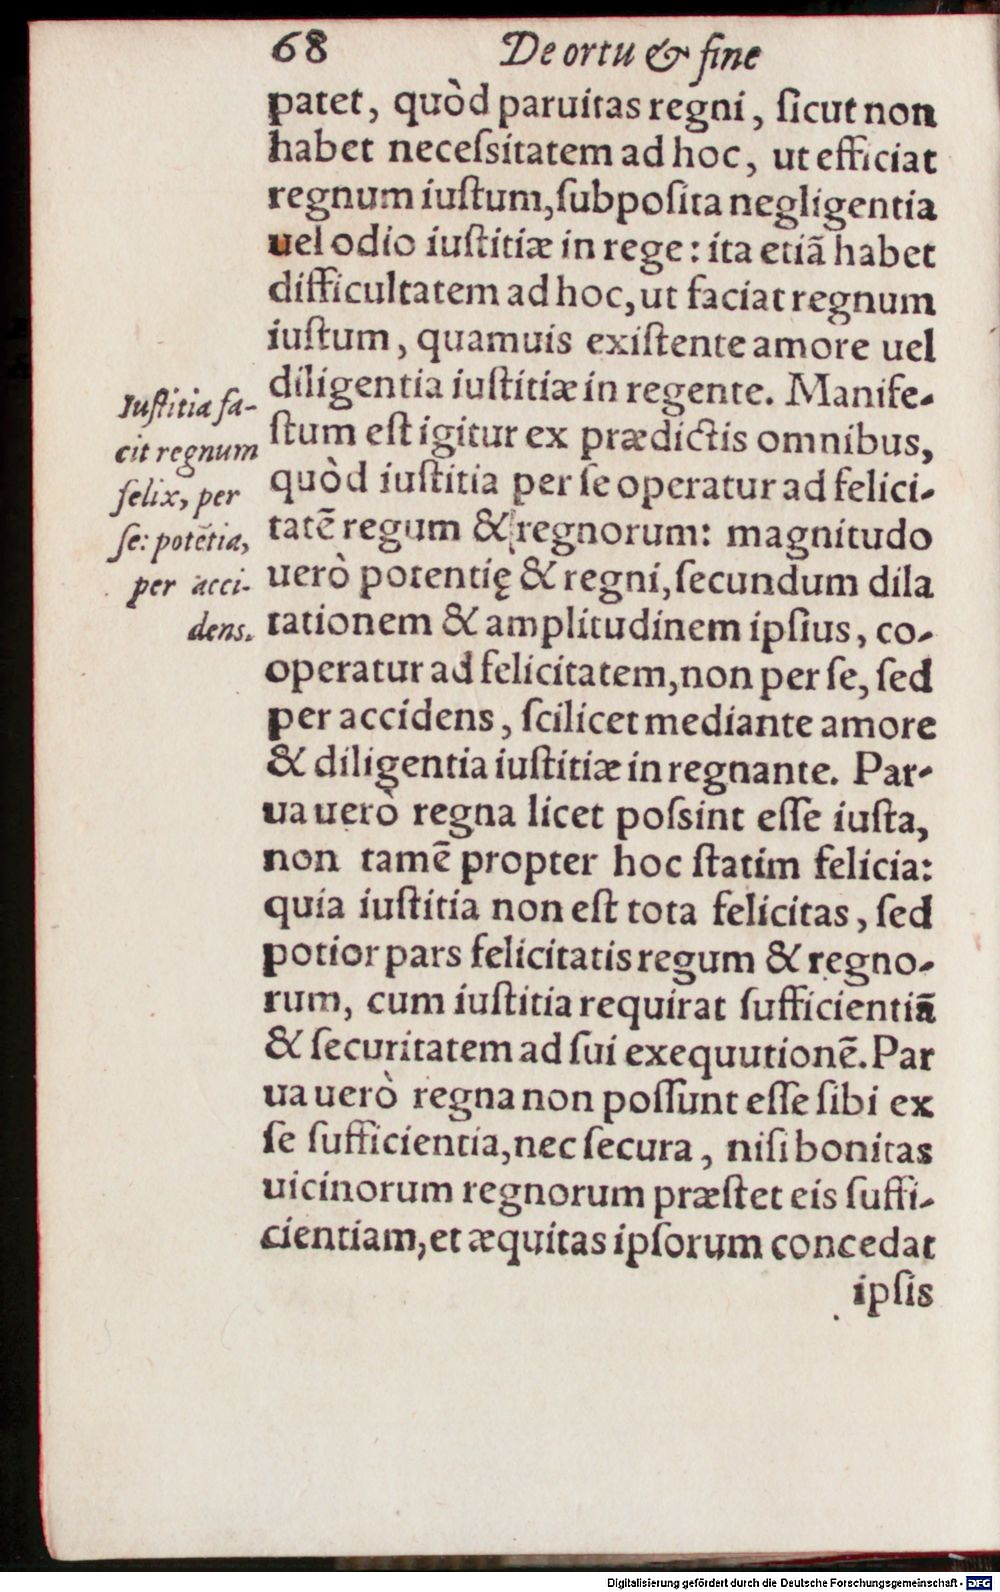 68 De ortu & fine
patet, quòd paruitas regni, ſicut non
habet neceſsitatem ad hoc, ut efficiat
regnum iuſtum, ſubpoſita negligentia
uel odio iuſtitiæ in rege: ita etiã habet
difficultatem ad hoc, ut faciat regnum
iuſtum, quamuis exiſtente amore uel
diligentia iuſtitiæ in regente. Manife-
ſtum eſt igitur ex prædictis omnibus,
quòd iuſtitia per ſe operatur ad felici-
tatẽ regum & regnorum: magnitudo
uerò potentię & regni, ſecundum dila
tationem & amplitudinem ipſius, co-
operatur ad felicitatem, non per ſe, ſed
per accidens, ſcilicet mediante amore
& diligentia iuſtitiæ in regnante. Par-
ua uerò regna licet poſsint eſſe iuſta,
non tamẽ propter hoc ſtatim felicia:
quia iuſtitia non eſt tota felicitas, ſed
potior pars felicitatis regum & regno-
rum, cum iuſtitia requirat ſufficientiã
& ſecuritatem ad ſui exequutionẽ. Par
ua uerò regna non poſſunt eſſe ſibi ex
ſe ſufficientia, nec ſecura, niſi bonitas
uicinorum regnorum præſtet eis ſuffi-
cientiam, et æquitas ipſorum concedat
ipſis
Iuſtitia fa-
cit regnum
felix, per
ſe: potẽtia,
per acci-
dens.
Digitalisierung gefördert durch die Deutsche Forschungsgemeinschaft - DFG